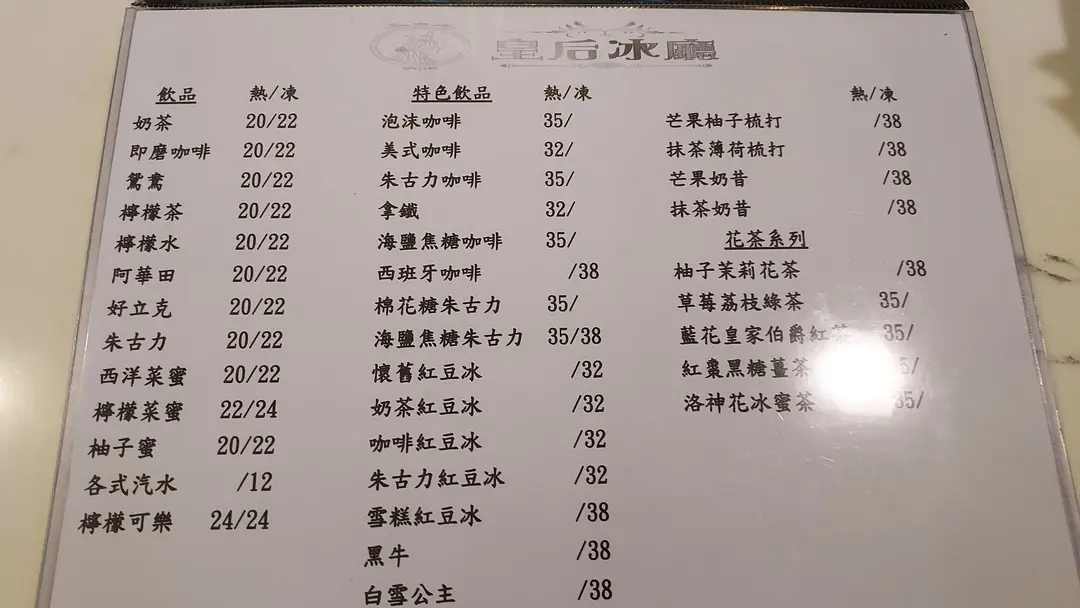 皇后冰廳
飲品 熱/凍
奶茶 20/22
即磨咖啡 20/22
鴛鴦 20/22
檸檬茶 20/22
檸檬水 20/22
阿華田 20/22
好立克 20/22
朱古力 20/22
西洋菜蜜 20/22
檸檬菜蜜 22/24
柚子蜜 20/22
各式汽水 /12
檸檬可樂 24/24
特色飲品 熱/凍
泡沫咖啡 35/
美式咖啡 32/
朱古力咖啡 35/
拿鐵 32/
海鹽焦糖咖啡 35/
西班牙咖啡 /38
棉花糖朱古力 35/
海鹽焦糖朱古力 35/38
懷舊紅豆冰 /32
奶茶紅豆冰 /32
咖啡紅豆冰 /32
朱古力紅豆冰 /32
雪糕紅豆冰 /38
黑牛 /38
白雪公主 /38
熱/凍
芒果柚子梳打 /38
抹茶薄荷梳打 /38
芒果奶昔 /38
抹茶奶昔 /38
花茶系列
柚子茉莉花茶 /38
草莓荔枝綠茶 35/
藍花皇家伯爵紅茶 35/
紅棗黑糖薑茶 5/
洛神花冰蜜茶 35/